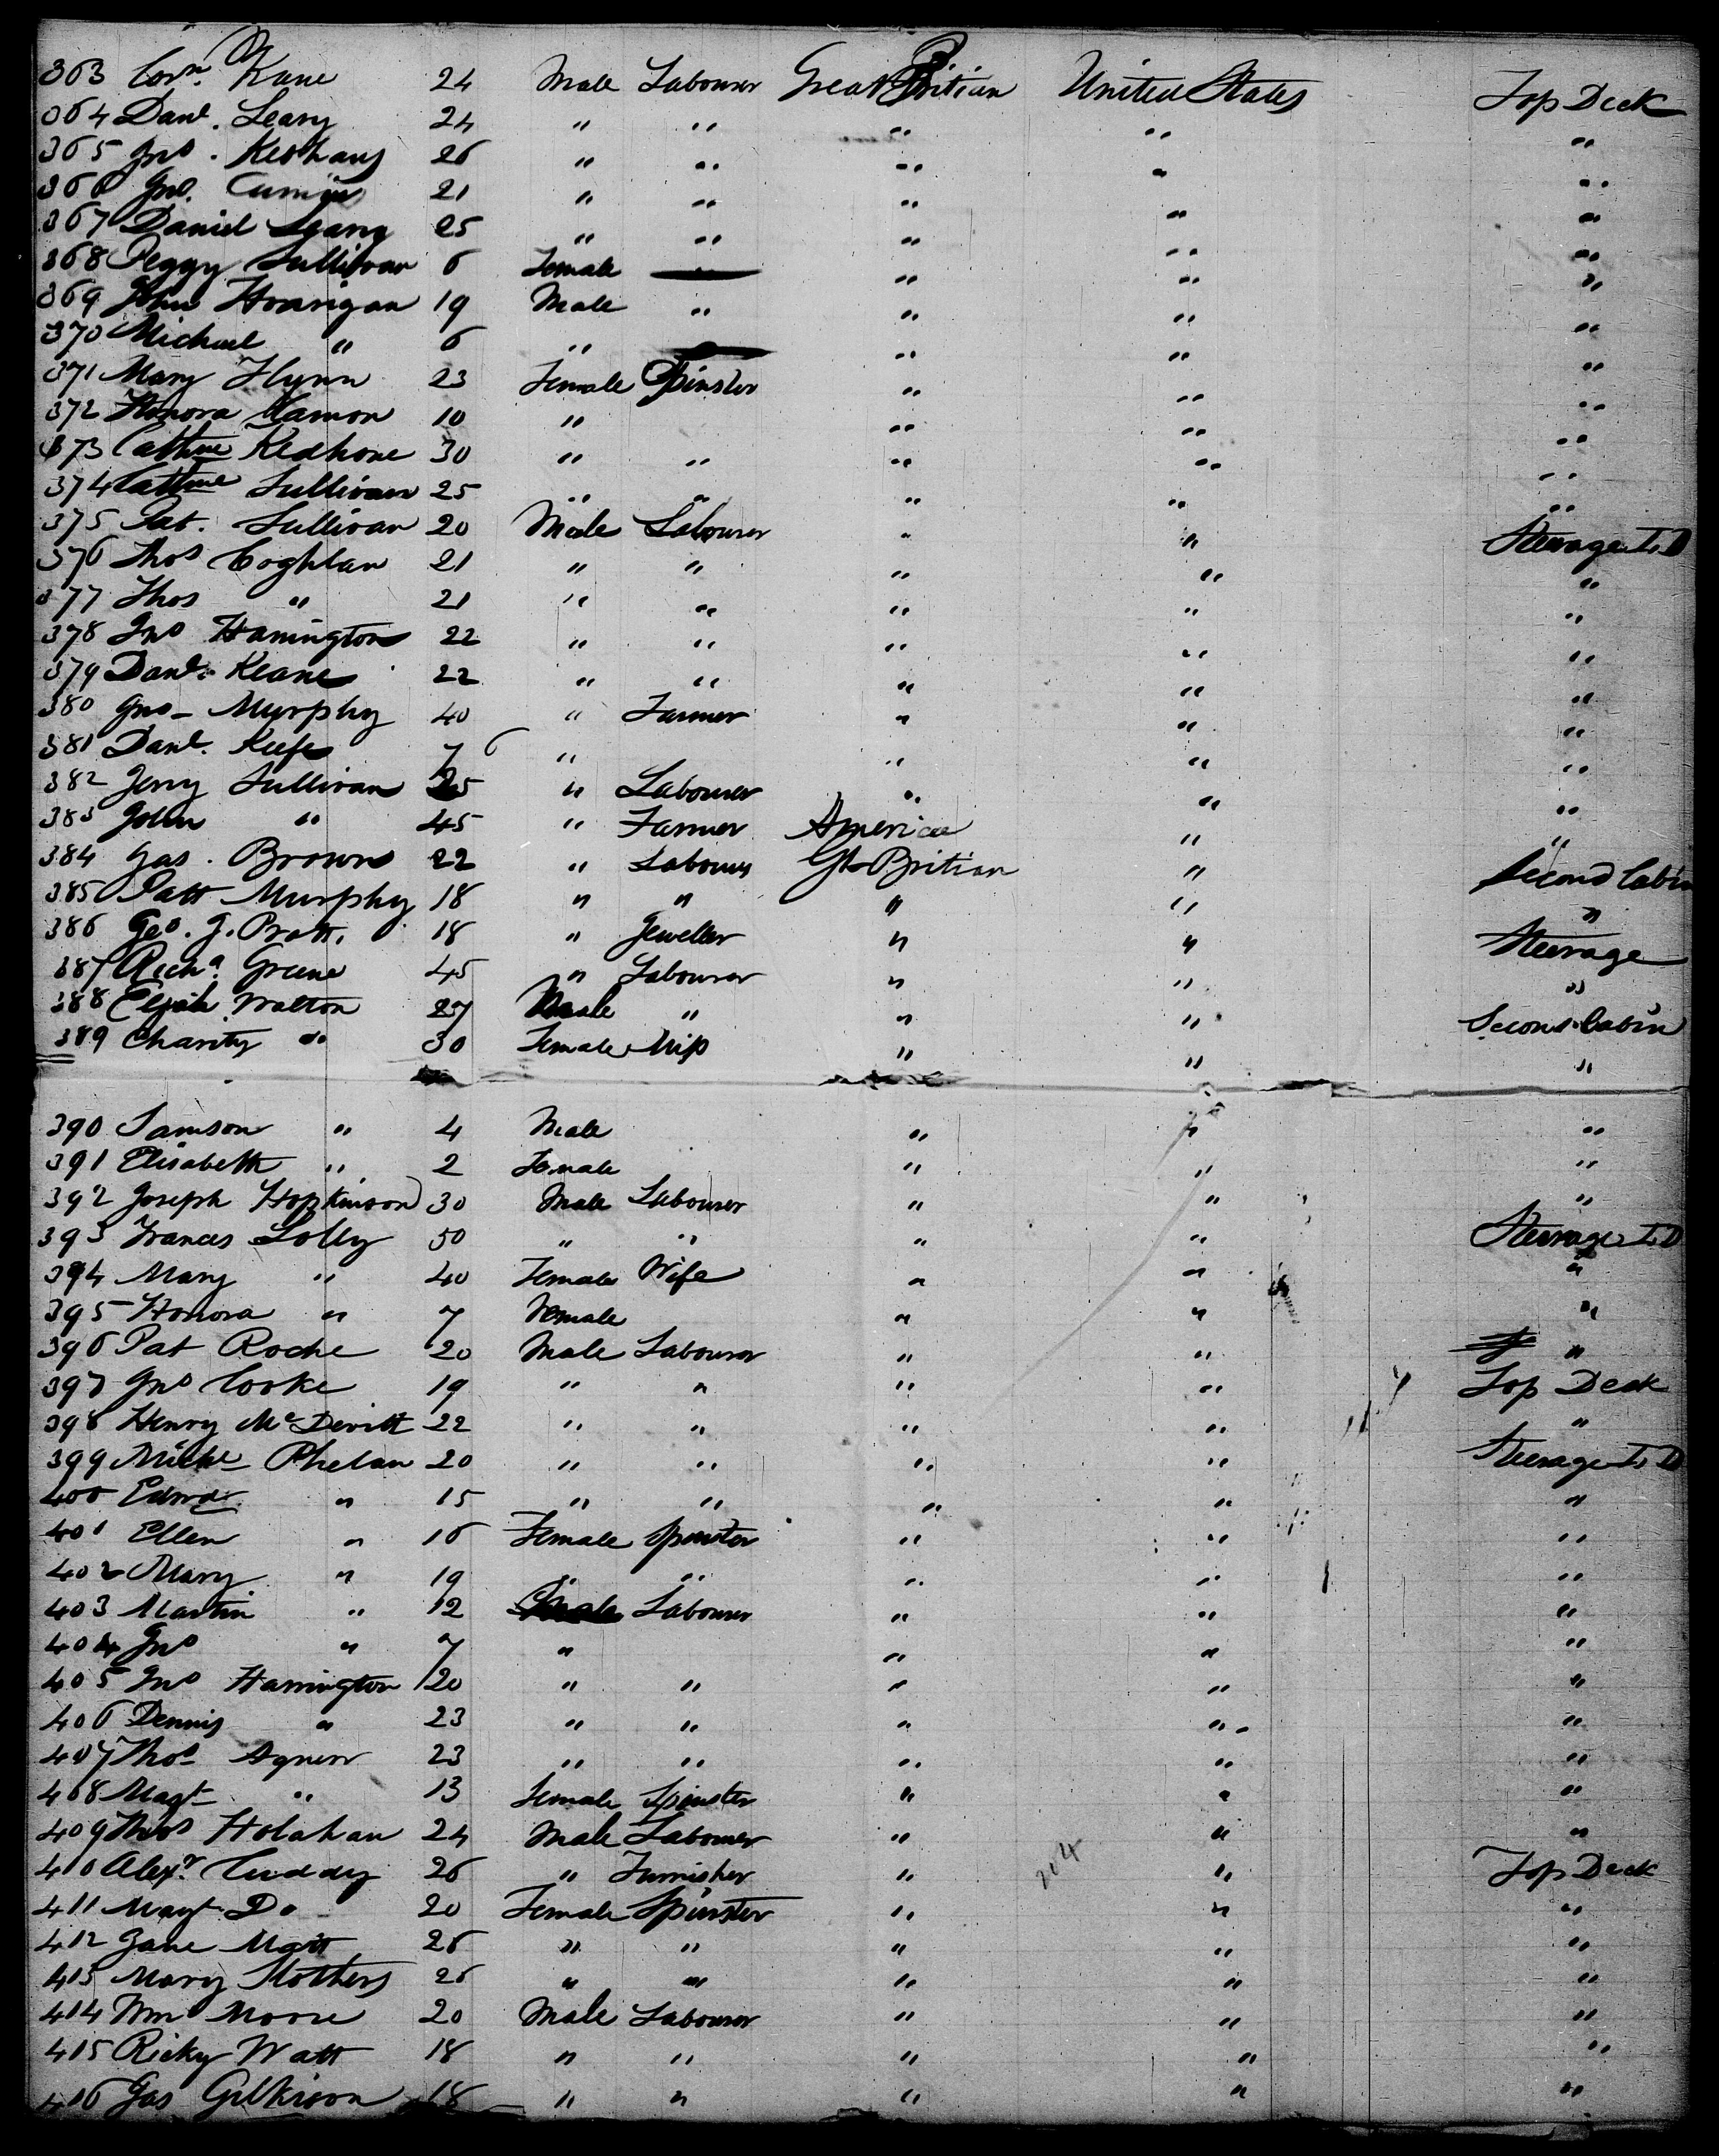 363 Corn. Kane 24 Male Labourer Great Britian United States Top Deck
364 Danl. Leary 24 " " " " "
365 Jno. Keohany 26 " " " " "
366 Jno. 21 " " " " "
367 Daniel Leary 25 " " " " "
368 Peggy Sullivan 6 Female — " " "
369 John Horrigan 19 Male " " " "
370 Michael " 6 " — " " "
371 Mary Flynn 23 Female Spinster " " "
372 Honora 10 " " " "
373 Cathne Keohone 30 " " " " "
374 Cathne Sullivan 25 " " " " "
375 Pat. Sullivan 20 Male Labourer " " Steerage L. D
376 Thos Coghlan 21 " " " " "
377 Thos " 21 " " " " "
378 Jno Harrington 22 " " " " "
379 Danl. Keane 22 " " " " "
380 Jno - Murphy 40 " Farmer " " "
381 Danl. Keefe 7 " " " "
382 Jerry Sullivan 25 " Labourer " " "
383 John " 45 " Farmer America " "
384 Jas. Brown 22 " Labourer Gt Britian " Second Cabin
385 Patt Murphy 18 " " " " "
386 Geo. J. Pratt. 18 " Jeweller " " Steerage
387 Richd. Greene 45 " Labourer " " "
388 Elijah Walton 27 Male " " " Second Cabin
389 Charity " 30 Female " " "
390 Samson " 4 Male " " "
391 Elisabeth " 2 Female " " "
392 Joseph Hopkinson 30 Male Labourer " " "
393 Frances Lolly 50 " " " " Steerage L. D
394 Mary " 40 Female Wife " " "
395 Honora " 7 Female " " "
396 Pat Roche 20 Male Labourer " " "
397 Jno Cooke 19 " " " " Top Deck
398 Henry McDevitt 22 " " " " "
399 Michl Phelan 20 " " " " Steerage L. D
400 Edwd " 15 " " " " "
401 Ellen " 16 Female Spinster " " "
402 Mary " 19 " " " " "
403 Martin " 12 Male Labourer " " "
404 Jno " 7 " " " "
405 Jno Harrington 20 " " " " "
406 Dennis " 23 " " " " "
407 Thos Agnew 23 " " " " "
408 Magt " 13 Female Spinster " " "
409 Thos Holahan 24 Male Labourer " " "
410 Alexr. Cuddy 26 " Furnisher " " Top Deck
411 Magt Do 20 Female Spinster " " "
412 Jane Matt 26 " " " " "
413 Mary Stothers 26 " " " " "
414 Wm Moore 20 Male Labourer " " "
415 Ricky Watt 18 " " " " "
416 Jas Gilkison 18 " " " " "
204